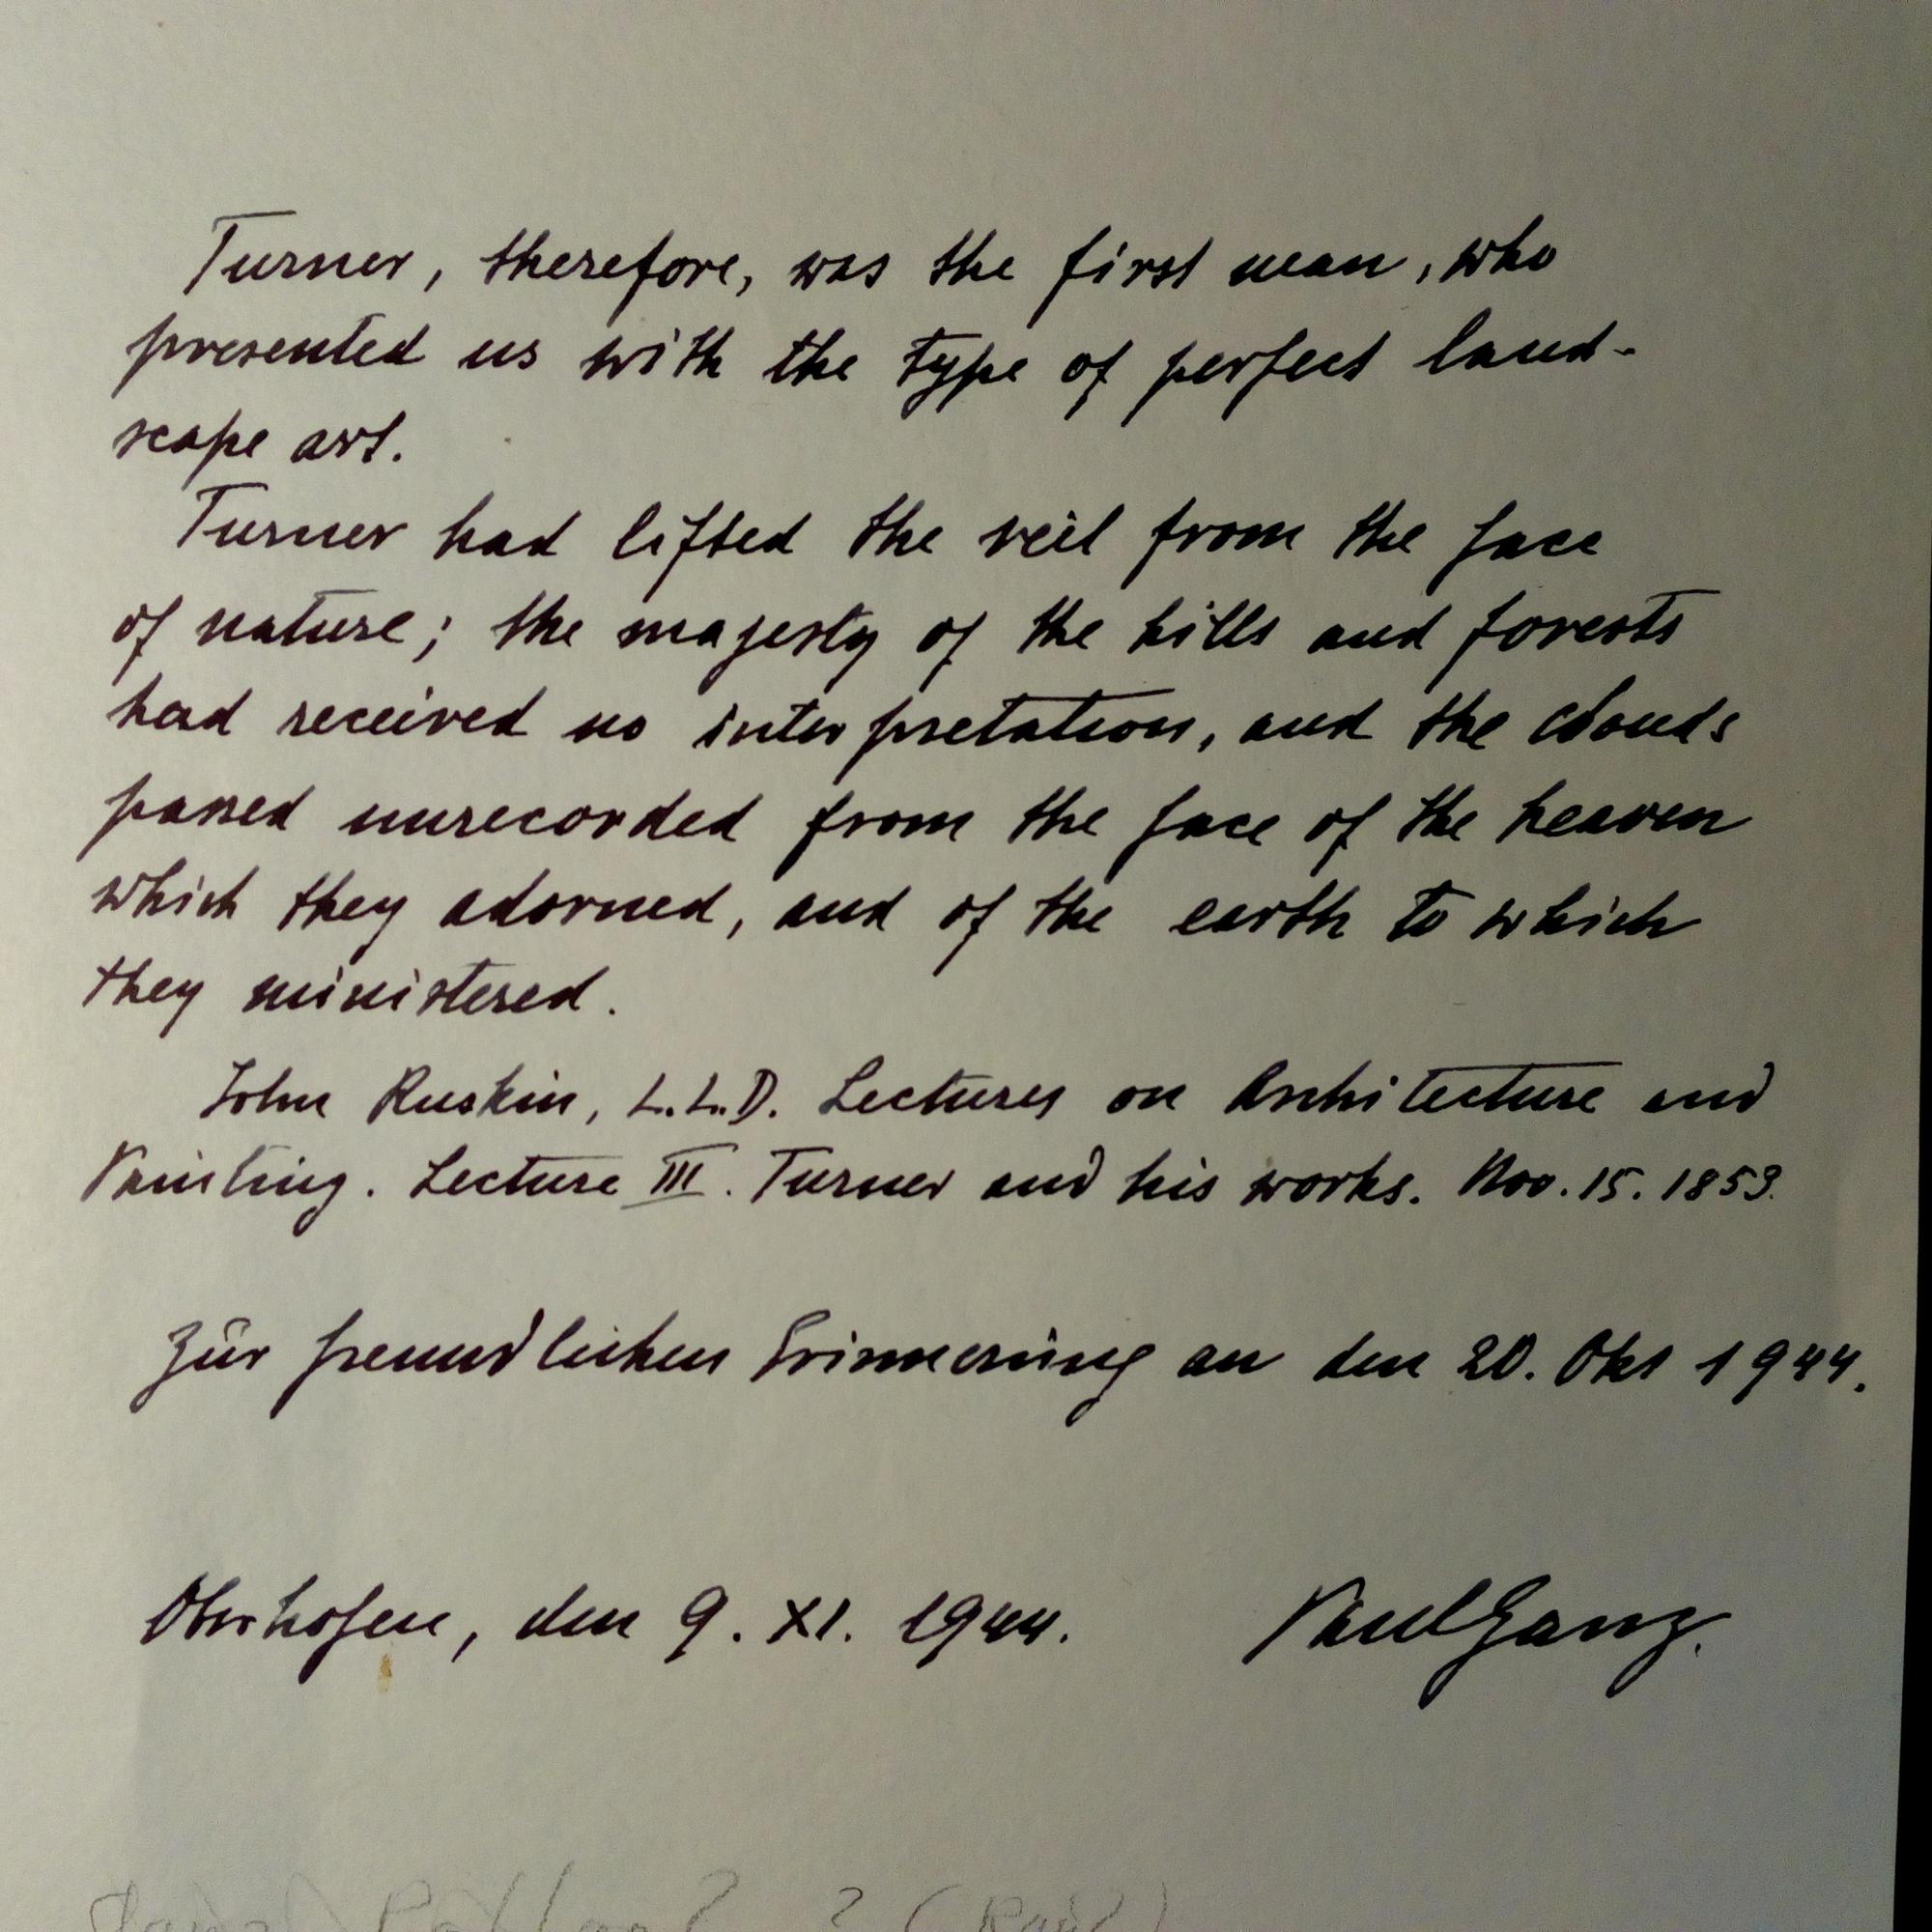 Turner, therefore, was the first man, who
presented us with the type of perfect land-
scape art.
Turner had lifted the veil from the face
of nature; the majesty of the hills and forests
had received no interpretation, and the clouds
passed unrecorded from the face of the heaven
which they adorned, and of the earth to which
they ministered.
John Ruskin, L.L.D. Lectures on Architecture and
Painting. Lecture III. Turner and his works. Nov. 15. 1853.
Zur freundlichen Erinnerung an den 20. Okt 1944.
Oberhofen, den 9. XI. 1944. Paul Ganz.